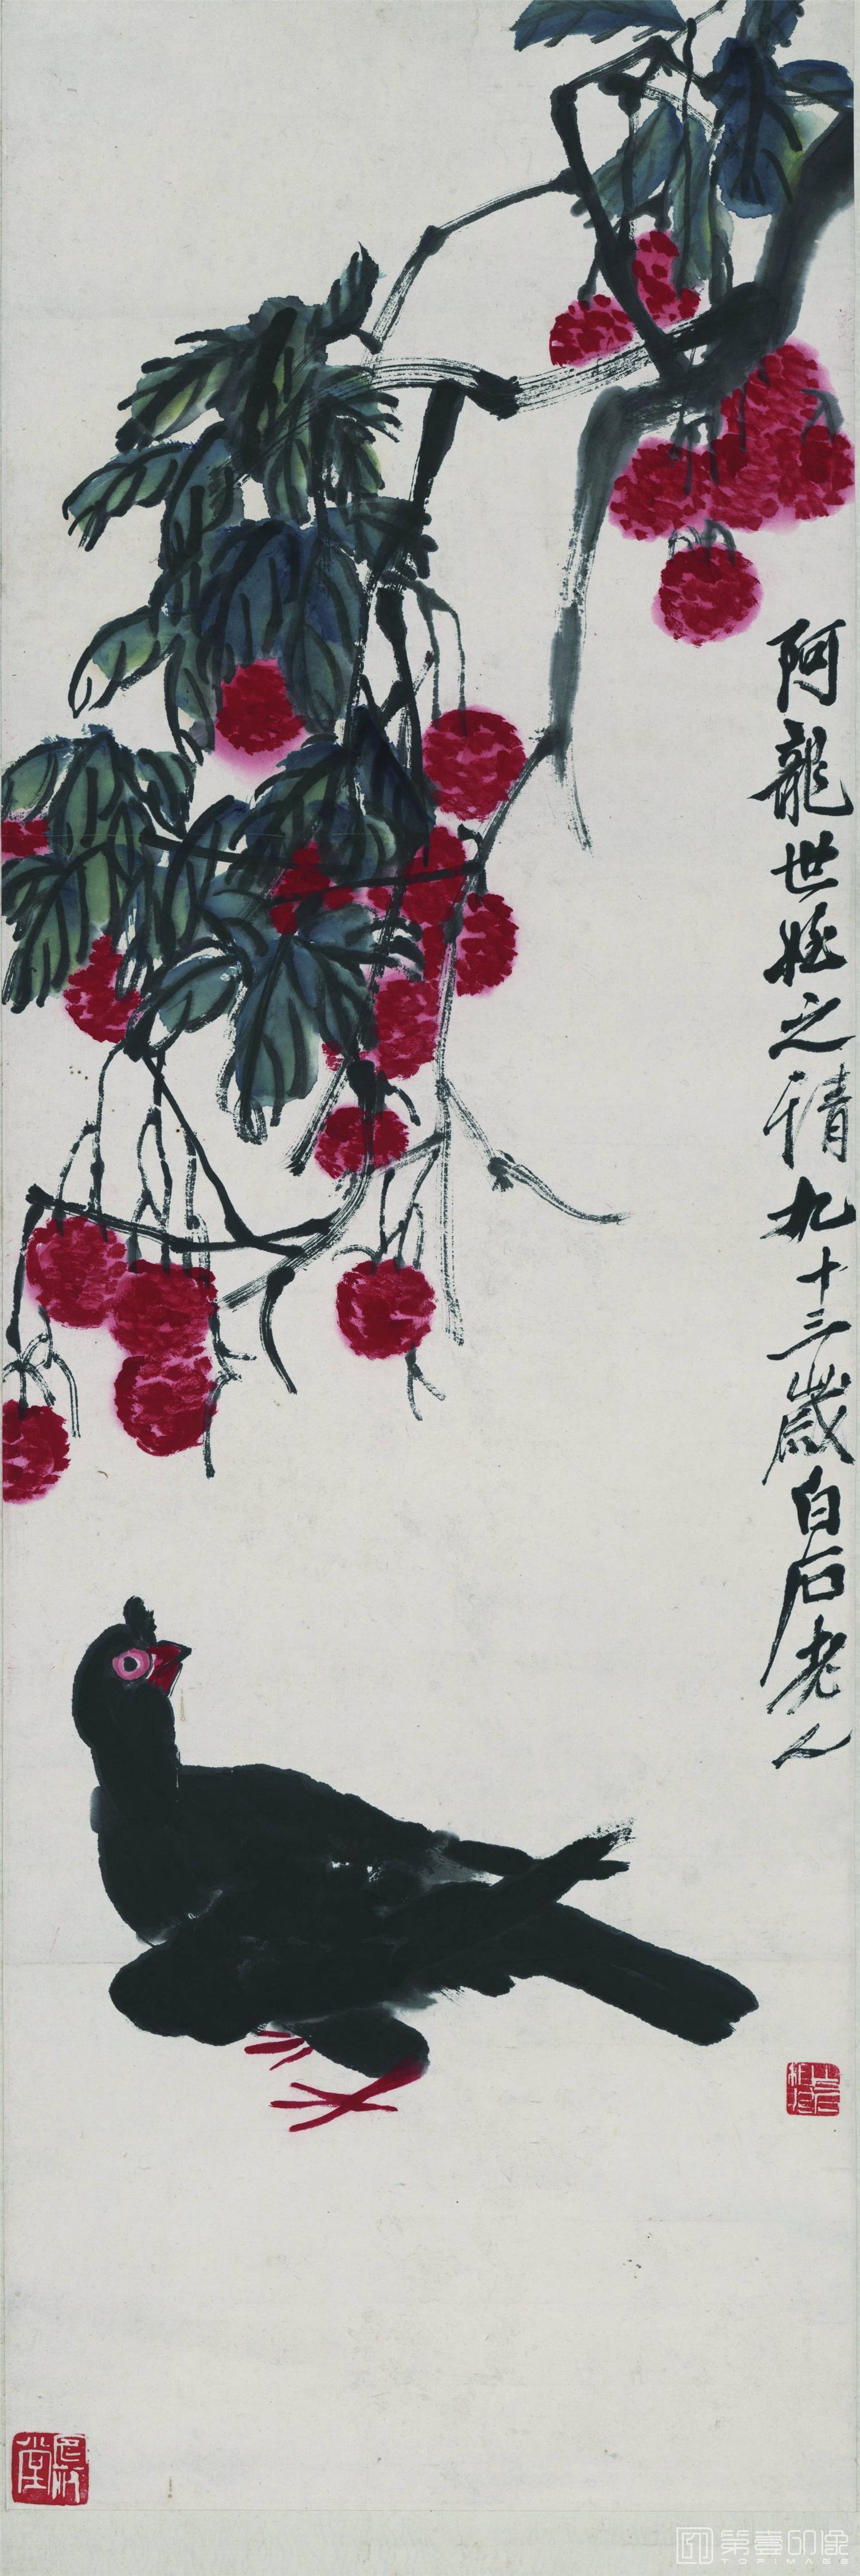 阿龍世姪之請九十三歲白石老人
第壹印像
TOPIMAGE